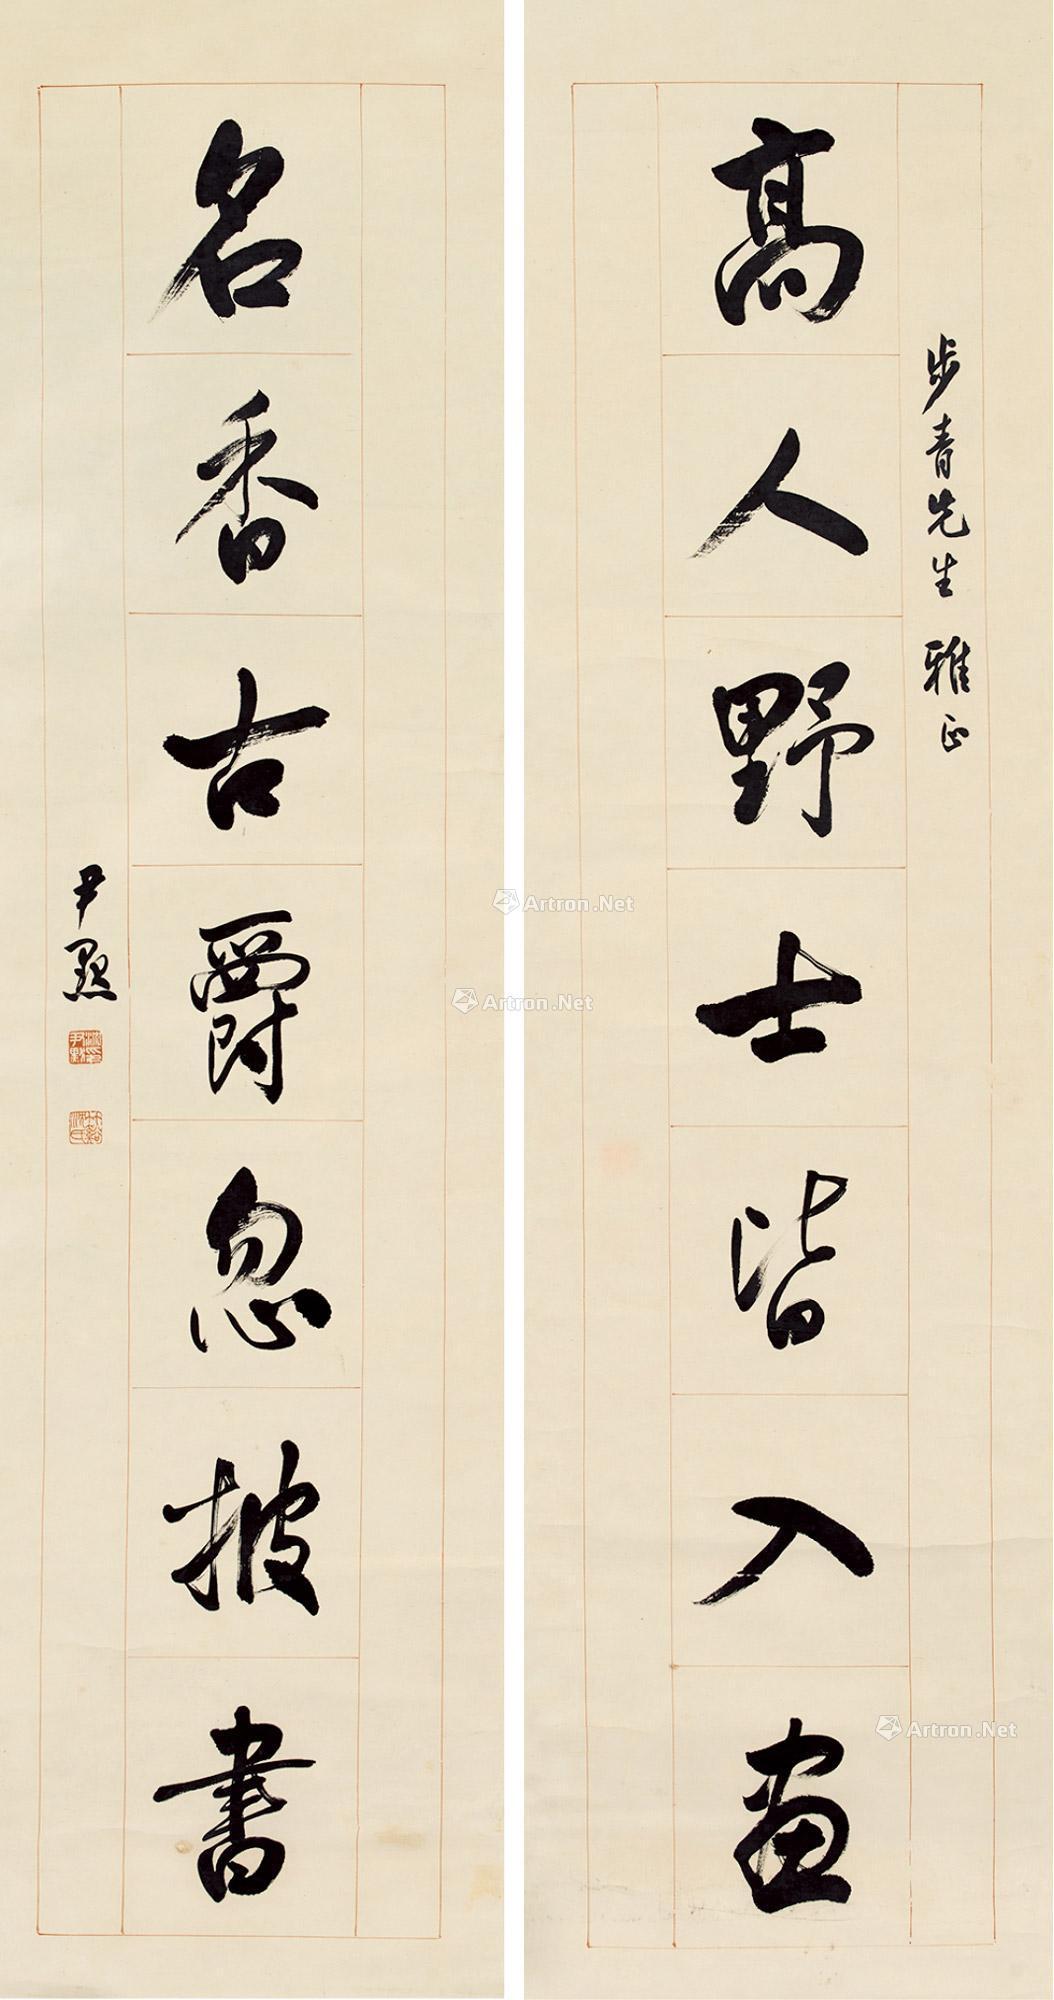 步青先生 雅正
高人野士皆入畫
名香古爵忽披書
尹默
沈尹默印
竹谿沈氏
Artron.Net
Artron.Net
Artron.Net